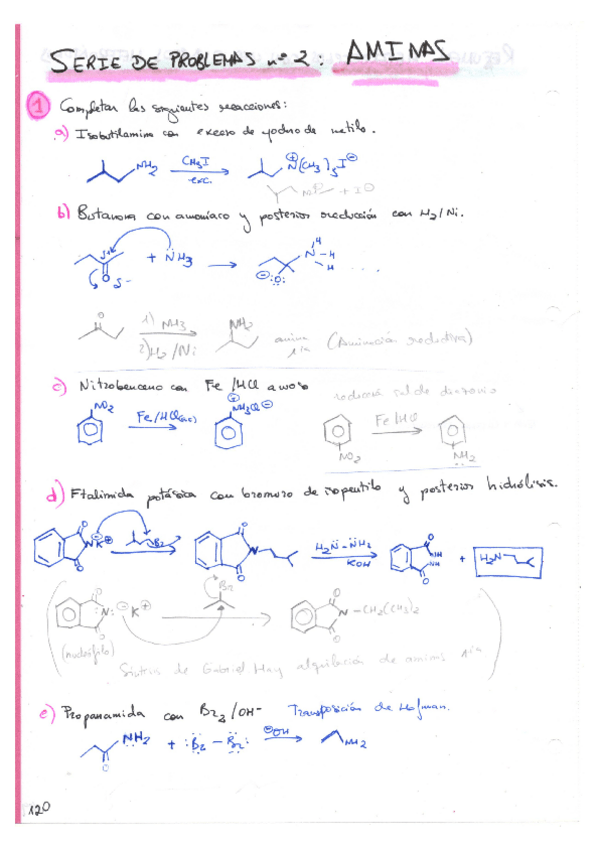 SERIE DE PROBLEMAS nº 2: AMINAS
1 Completar las siguientes reacciones:
a) Isobutilamina con exceso de yoduro de metilo.
NH2 CH3I exc. N(CH3)3 I⊖
+ I⊖
b) Butanona con amoníaco y posterior reducción con H2/Ni.
δ+ O δ- + NH3 ⊖:O: N-H H H ....
O 1) NH3 2) H2/Ni NH2 amina 1ria (Aminación reductiva)
c) Nitrobenceno con Fe/HCl acuoso
NO2 Fe/HCl(ac) ⊕NH3Cl⊖
NO2 Fe/HCl NH2
d) Ftalimida potásica con bromuro de isopentilo y posterior hidrólisis.
O O N K⊕ Br O O N H2N-NH2 KOH O NH NH O + H2N
O O N: ⊖ K⊕ Br O O N -CH2(CH3)2
(nucleófilo)
Síntesis de Gabriel Hay alquilación de aminas 1ria
e) Propanamida con Br2/OH- Transposición de Hofman.
NH2 O + :Br - Br: ⊖OH NH2
120